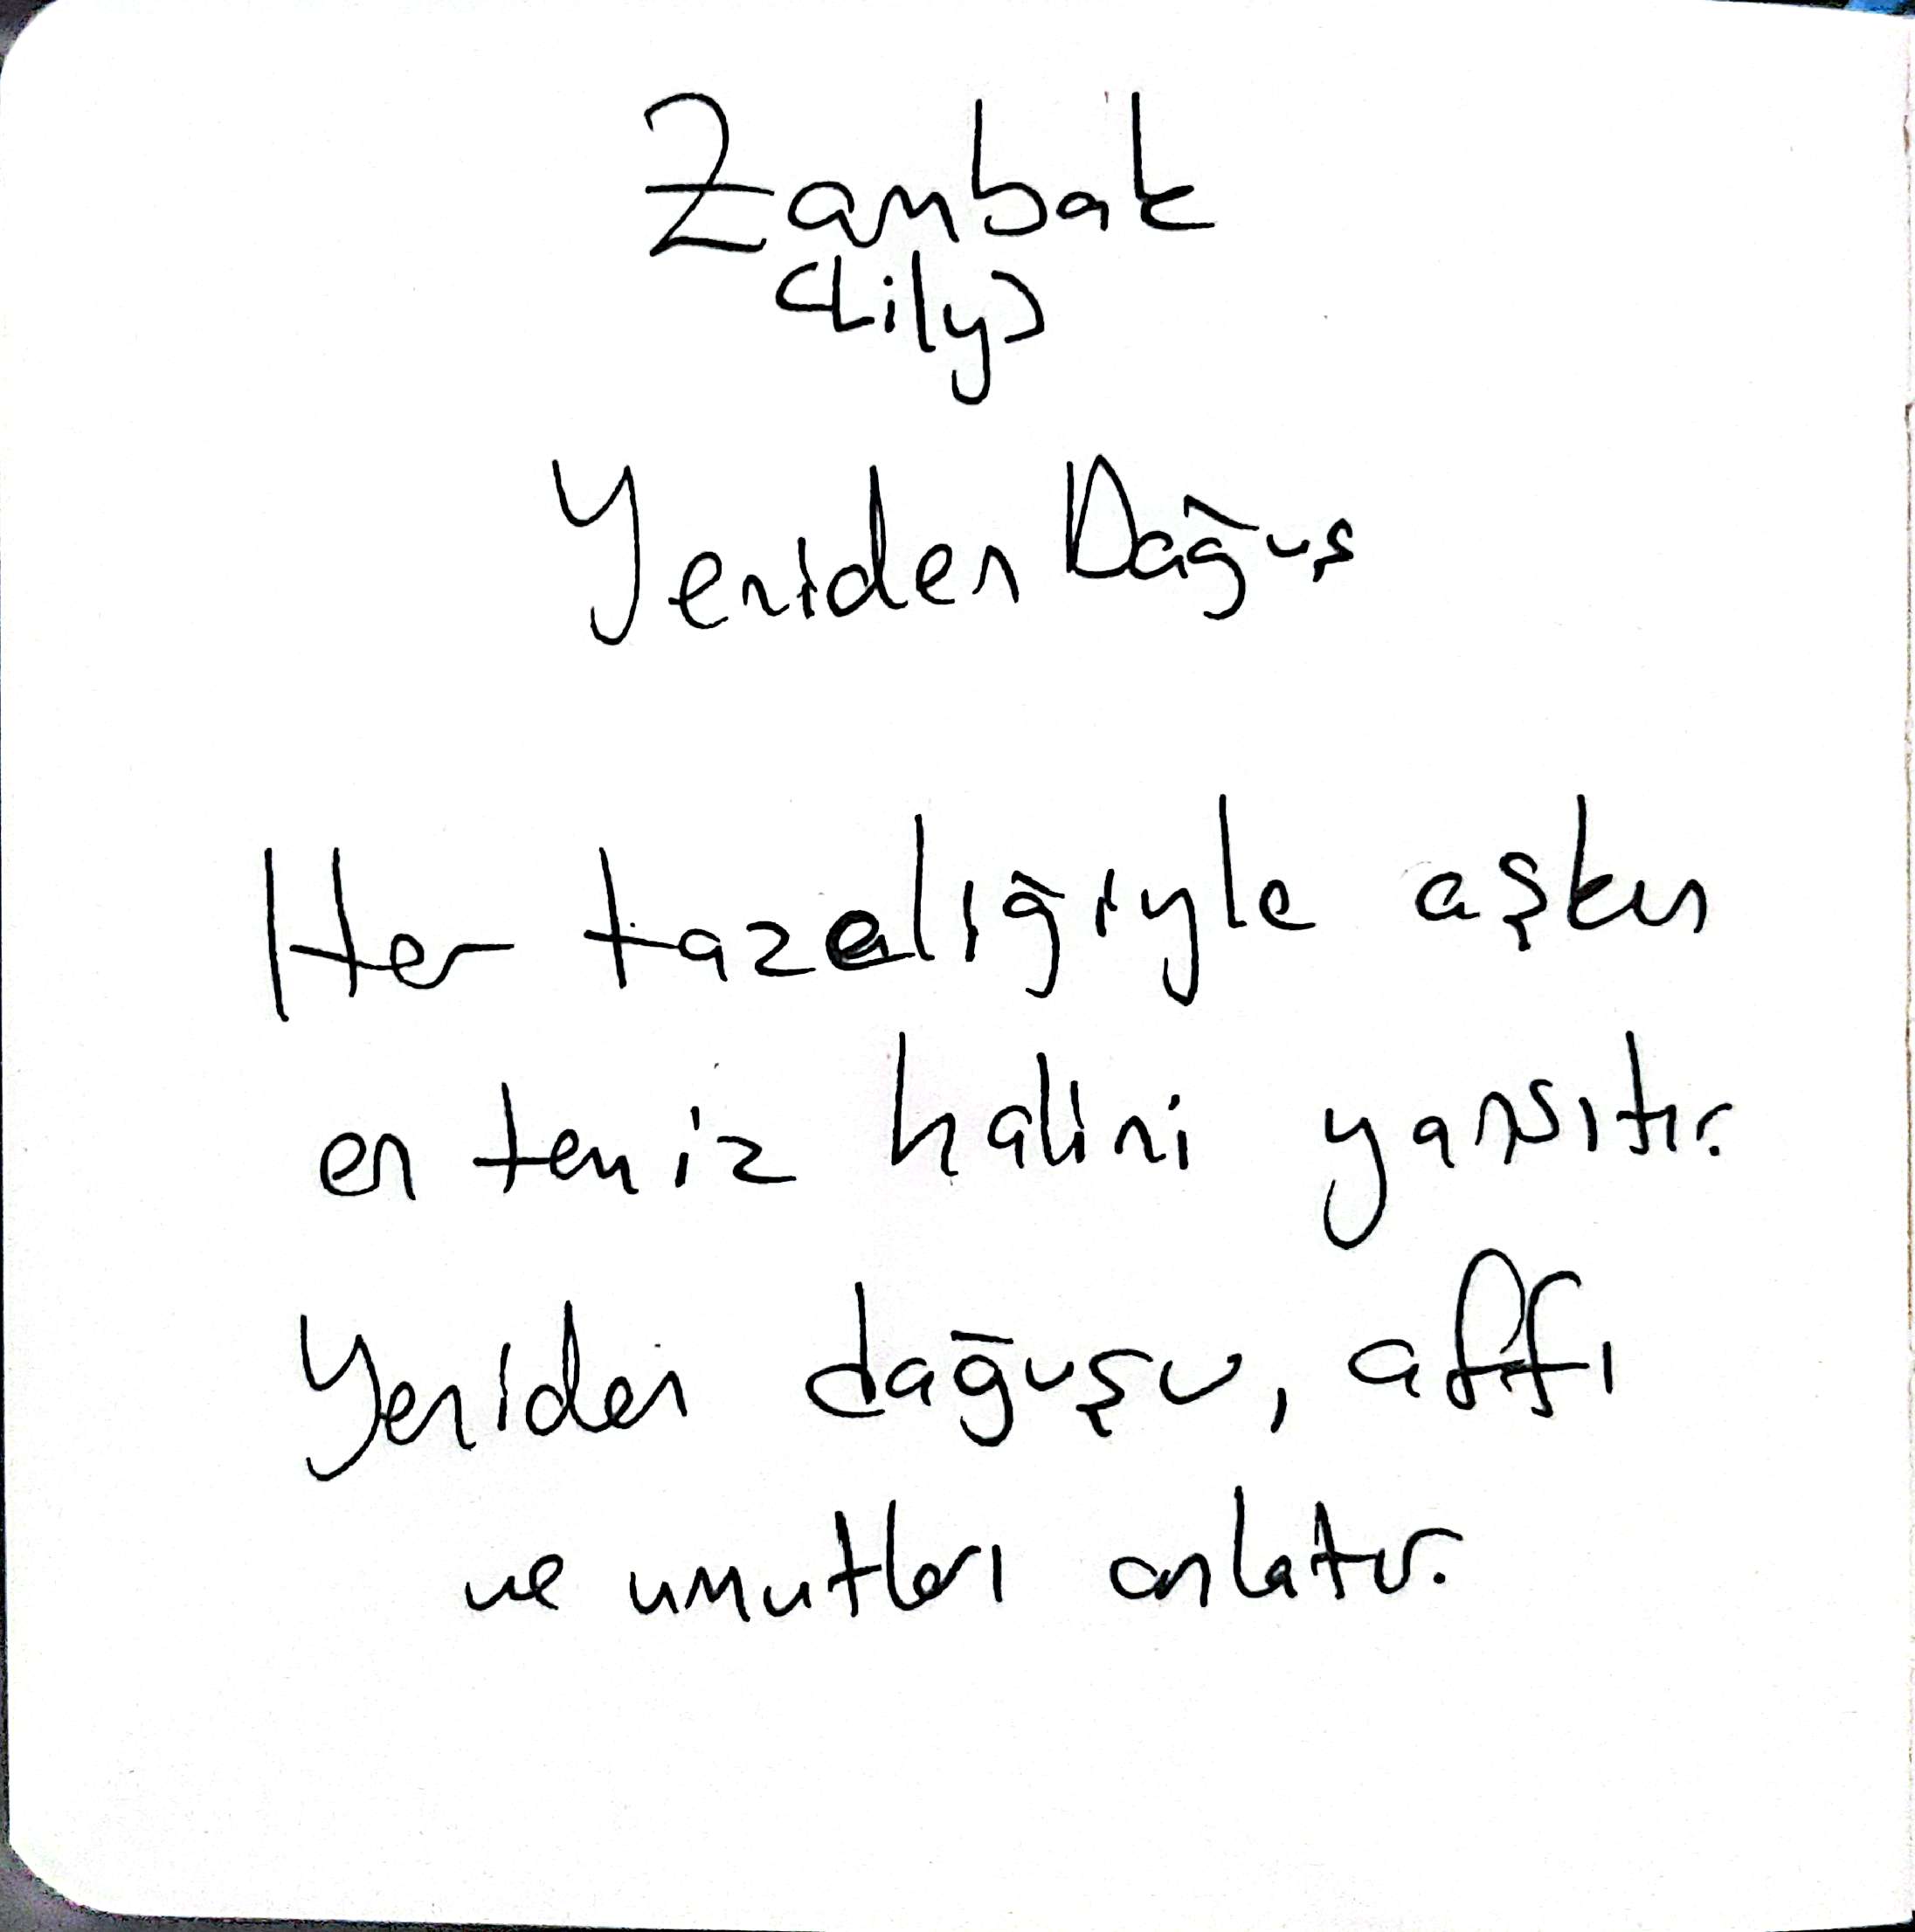 Zambak
(Lily)
Yeniden Dağuş
Her tazeliğiyle aşkın
en temiz halini yansıtır.
Yeniden dağuşu, affı
ve umutları anlatır.